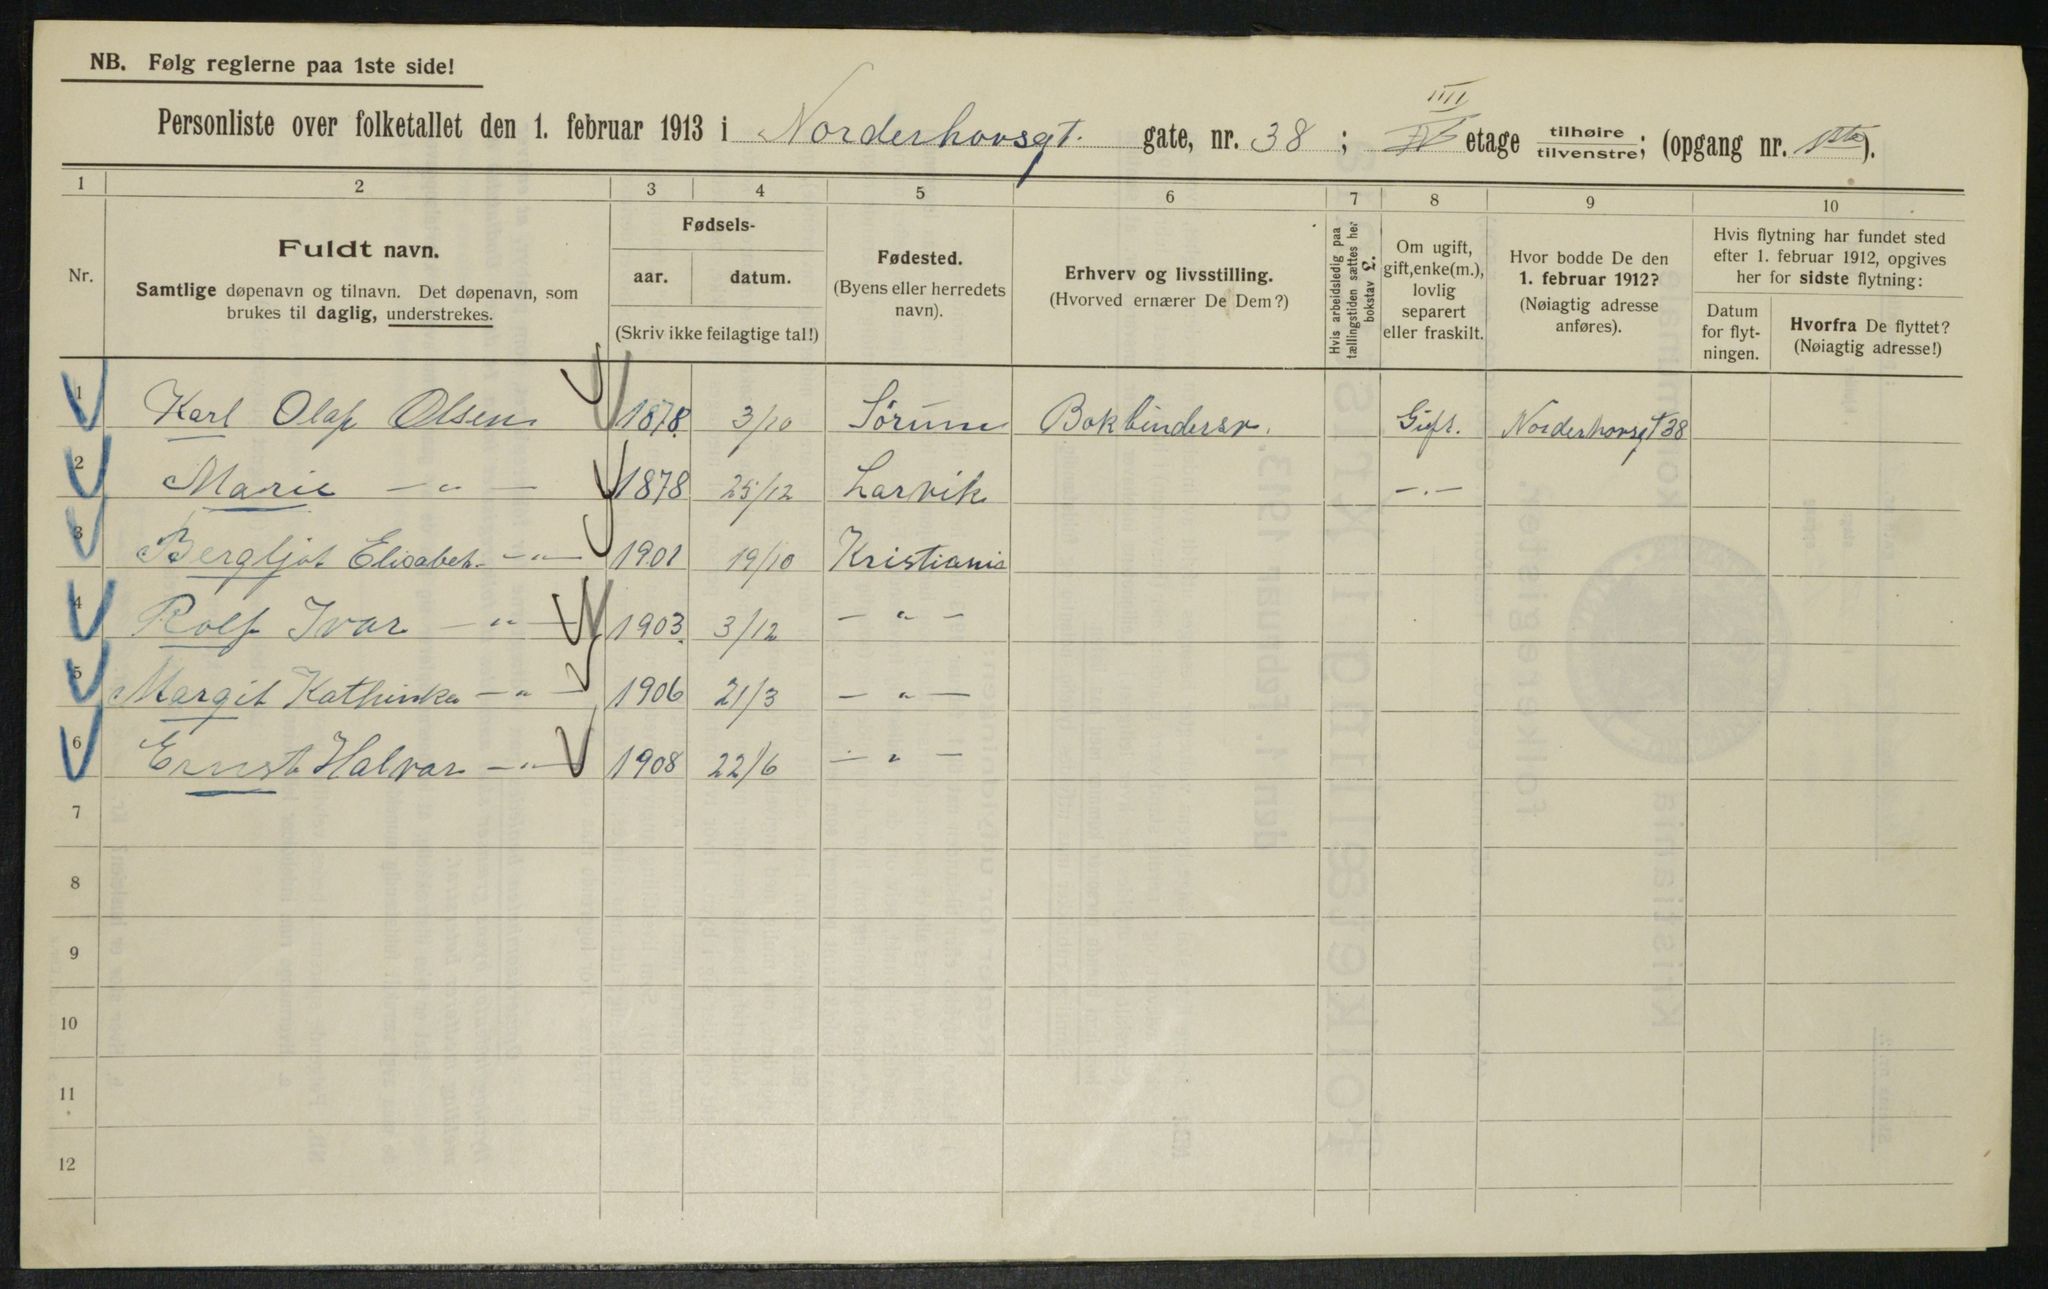 NB. Følg reglerne paa 1ste side!
Personliste over folketallet den 1. februar 1913 i Norderhovsgt. gate, nr. 38 ; IIII etage tilhøire / tilvenstre; (opgang nr. 1ste).
1 2 3 4 5 6 7 8 9 10
Nr.
Fuldt navn.
Samtlige døpenavn og tilnavn. Det døpenavn, som
brukes til daglig, understrekes.
Fødsels-
aar. datum.
(Skriv ikke feilagtige tal!)
Fødested.
(Byens eller herredets
navn).
Erhverv og livsstilling.
(Hvorved ernærer De Dem?)
Hvis arbeidsledig paa
tællingstiden sættes her
bokstav L.
Om ugift,
gift, enke(m.),
lovlig
separert
eller fraskilt.
Hvor bodde De den
1. februar 1912?
(Nøiagtig adresse
anføres).
Hvis flytning har fundet sted
efter 1. februar 1912, opgives
her for sidste flytning:
Datum
for flyt-
ningen.
Hvorfra De flyttet?
(Nøiagtig adresse!)
1 Karl Olaf Olsen 1878 3/10 Sørum Bokbindersv. Gift. Norderhovsgt 38
2 Marie — „ — 1878 25/12 Larvik — „ —
3 Bergljot Elisabet — „ — 1901 19/10 Kristiania
4 Rolf Ivar — „ — 1903 3/12 — „ —
5 Margit Kathinka — „ — 1906 21/3 — „ —
6 Ernst Halvar — „ — 1908 22/6 — „ —
7
8
9
10
11
12